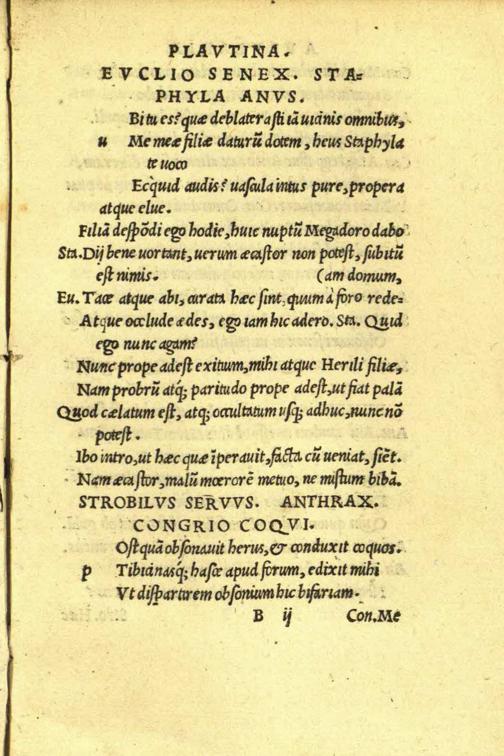 PLAVTINA.
EVCLIO SENEX. STA=
PHYLA ANVS.
Bi tu es? quæ deblaterasti iã uicinis omnibus,
u Me meæ filiæ daturũ dotem, heus Staphyla
te uoco
Ecquid audis? uascula intus pure, propera
atque elue.
Filiã despõdi ego hodie, huic nuptũ Megadoro dabo
Sta. Dij bene uortant, uerum æcastor non potest, subitũ
est nimis. (am domum,
Eu. Tace atque abi, curata hæc sint, quum à foro rede=
Atque occlude ædes, ego iam hic adero. Sta. Quid
ego nunc agam?
Nunc prope adest exitum, mihi atque Herili filiæ,
Nam probrũ atq; paritudo prope adest, ut fiat palã
Quod cælatum est, atq; occultatum usq; adhuc, nunc nõ
potest.
Ibo intro, ut hæc quæ ĩperauit, facta cũ ueniat, siẽt.
Nam æcastor, malũ mœrorẽ metuo, ne mistum bibã.
STROBILVS SERVVS. ANTHRAX.
CONGRIO COQVI.
Ostquã obsonauit herus, & conduxit coquos.
p Tibicinasq; hasce apud forum, edixit mihi
Vt dispartirem obsonium hic bifariam.
B ij Con. Me